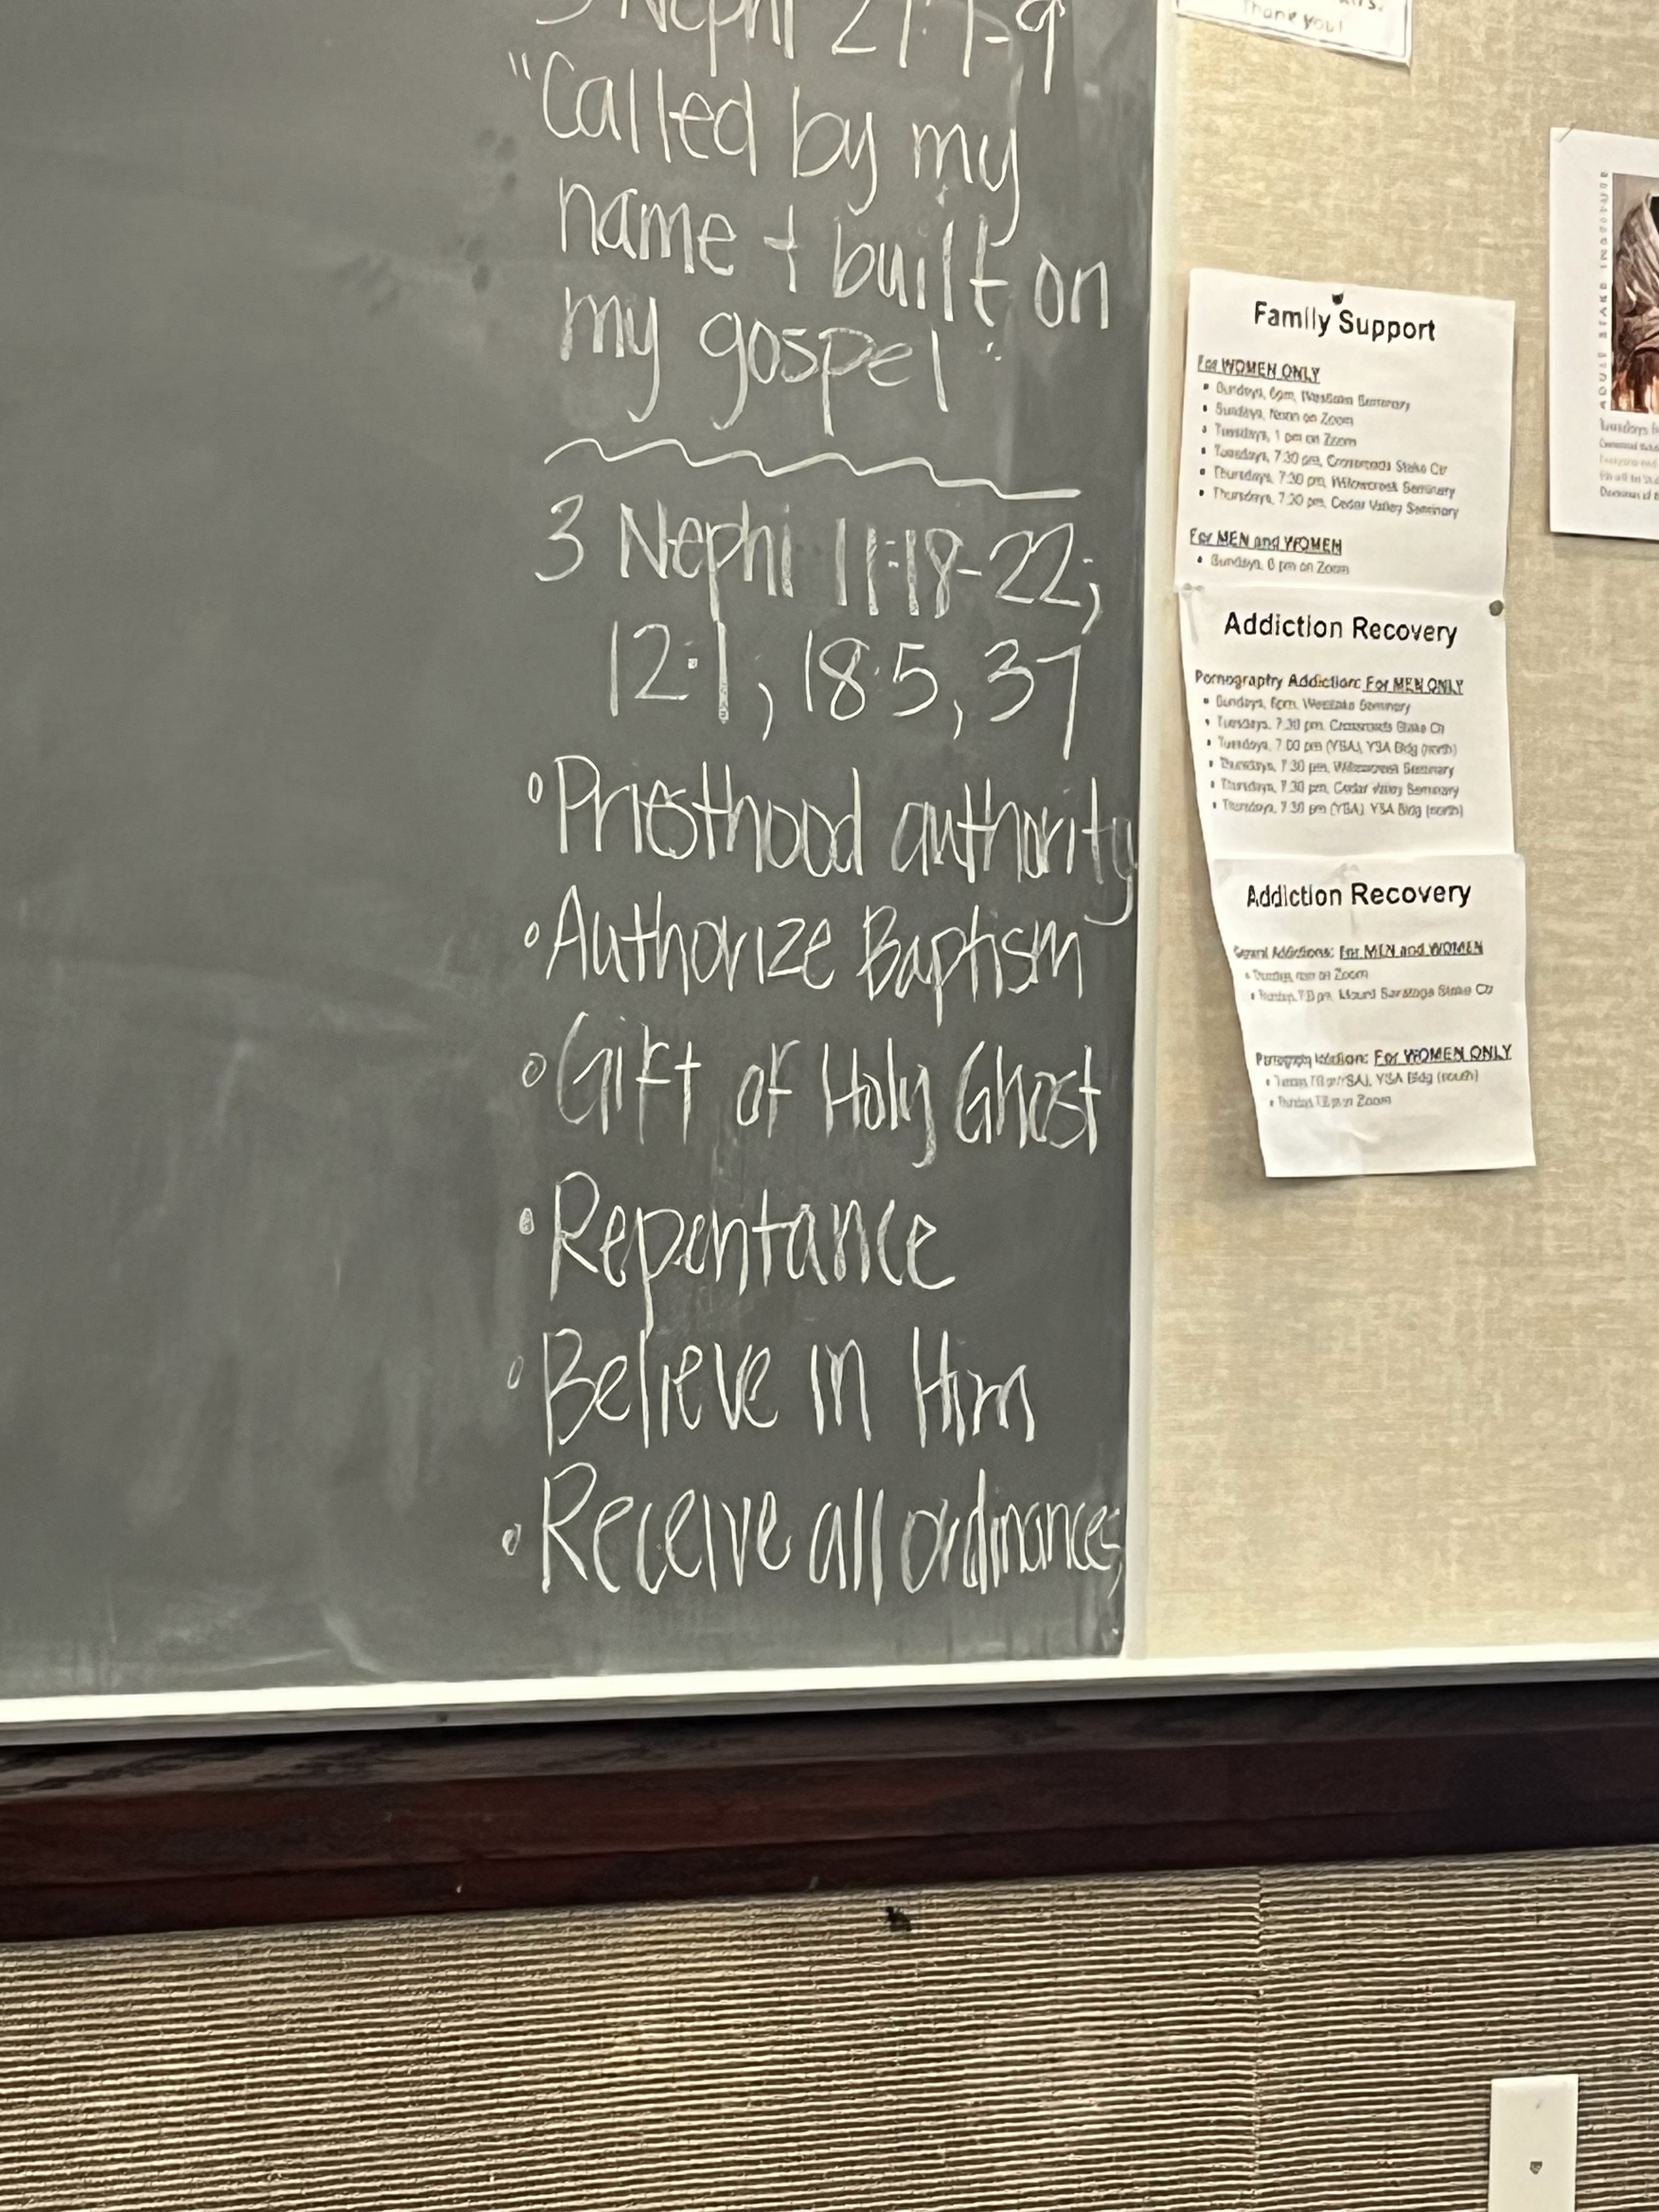 Thank you!
3 Nephi 27:7-9
"Called by my
name + built on
my gospel"
3 Nephi 11:18-22;
12:1, 18:5, 37
Priesthood authority
Authorize Baptism
Gift of Holy Ghost
Repentance
Believe in Him
Receive all ordinances
Family Support
For WOMEN ONLY
Sundays, 6pm, Westlake Seminary
Sundays, Noon on Zoom
Tuesdays, 1 pm on Zoom
Tuesdays, 7:30 pm, Crossroads Stake Ctr
Thursdays, 7:30 pm, Willowcreek Seminary
Thursdays, 7:30 pm, Cedar Valley Seminary
For MEN and WOMEN
Sundays, 6 pm on Zoom
Addiction Recovery
Pornography Addiction: For MEN ONLY
Sundays, 6pm, Westlake Seminary
Tuesdays, 7:30 pm, Crossroads Stake Ctr
Tuesdays, 7:00 pm (YSA), YSA Bldg (north)
Thursdays, 7:30 pm, Willowcreek Seminary
Thursdays, 7:30 pm, Cedar Valley Seminary
Thursdays, 7:30 pm (YSA) YSA Bldg (north)
Addiction Recovery
Addictions: For MEN and WOMEN
on Zoom
pm, Mount Saratoga Stake Ctr
For WOMEN ONLY
YSA Bldg (south)
Zoom